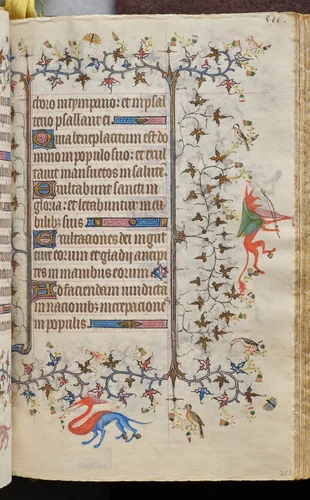 choro in tympano: et in psal
terio psallant ei
Quia beneplacitum est do
mino in populo suo: et exal
tauit mansuetos in salute
Exultabunt sancti in
gloria: et letabuntur in cu
bilibz suis
Exultaciones dei in gut
ture eorum et gladij ancipi
tes in manibus eorum
Ad faciendam uindicta
in nacionibz increpaciones
in populis